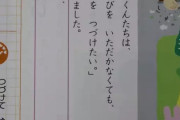 くんたちは、
びを いただかなくても、
を つづけたい。」
ました。
つづけて